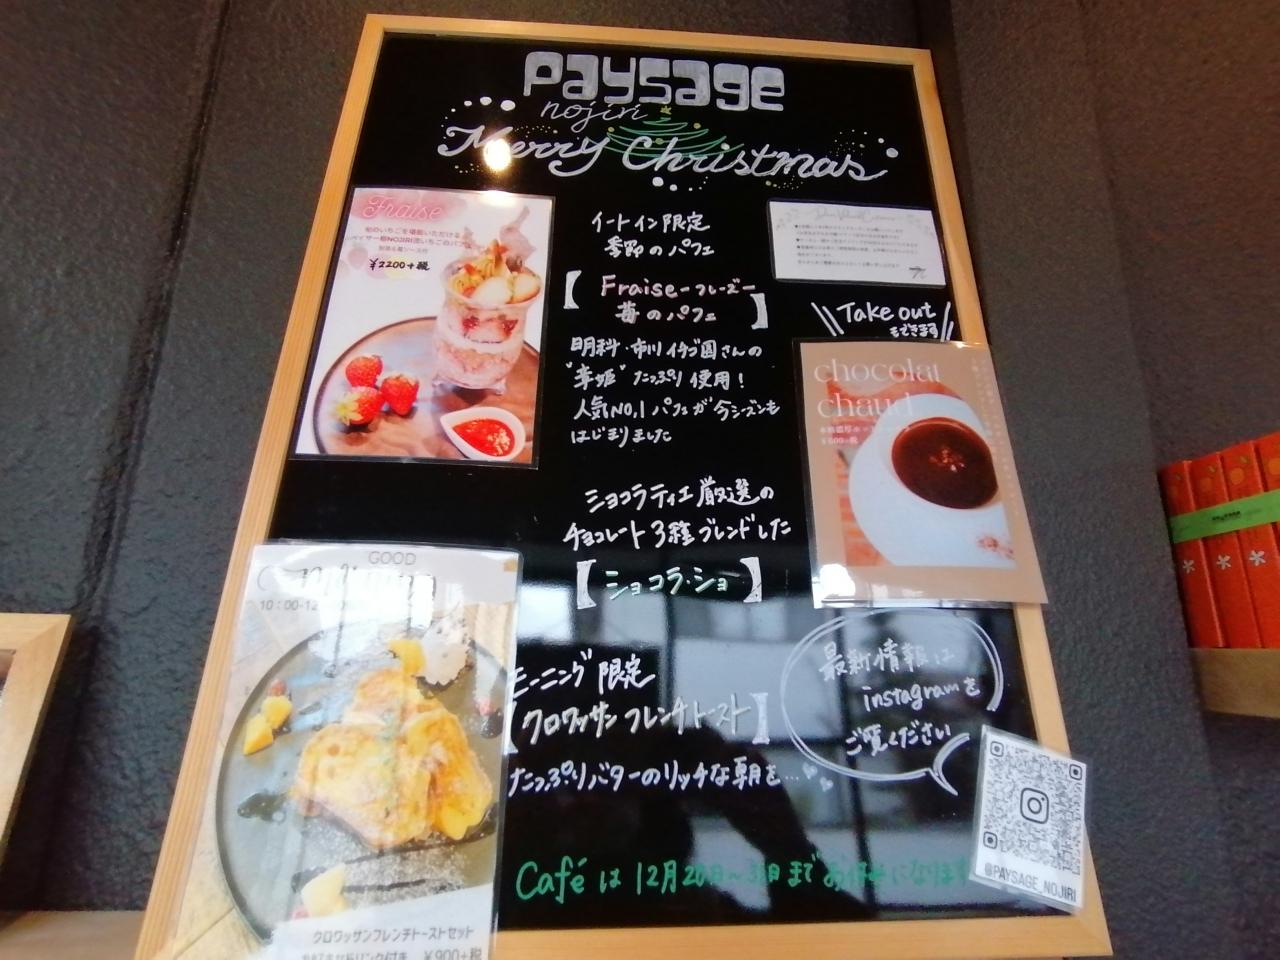 paysage
nojiri
Merry Christmas
Fraise
旬のいちごを堪能いただける
¥2200+税
イートイン限定
季節のパフェ
【Fraiseーフレーズー
苺のパフェ】
明科・市川イチゴ園さんの
"章姫"たっぷり使用!
人気NO.1パフェが今シーズンも
はじまりました
Take out
もできます
chocolat
chaud
¥600+税
ショコラティエ厳選の
チョコレート3種ブレンドした
【ショコラ・ショ】
GOOD
10:00-12
モーニング限定
【クロワッサンフレンチトースト】
たっぷりバターのリッチな朝を...
最新情報は
instagramを
ご覧ください
@PAYSAGE_NOJIRI
Café は12月20日〜31日までお休みになります
クロワッサンフレンチトーストセット
¥900+税